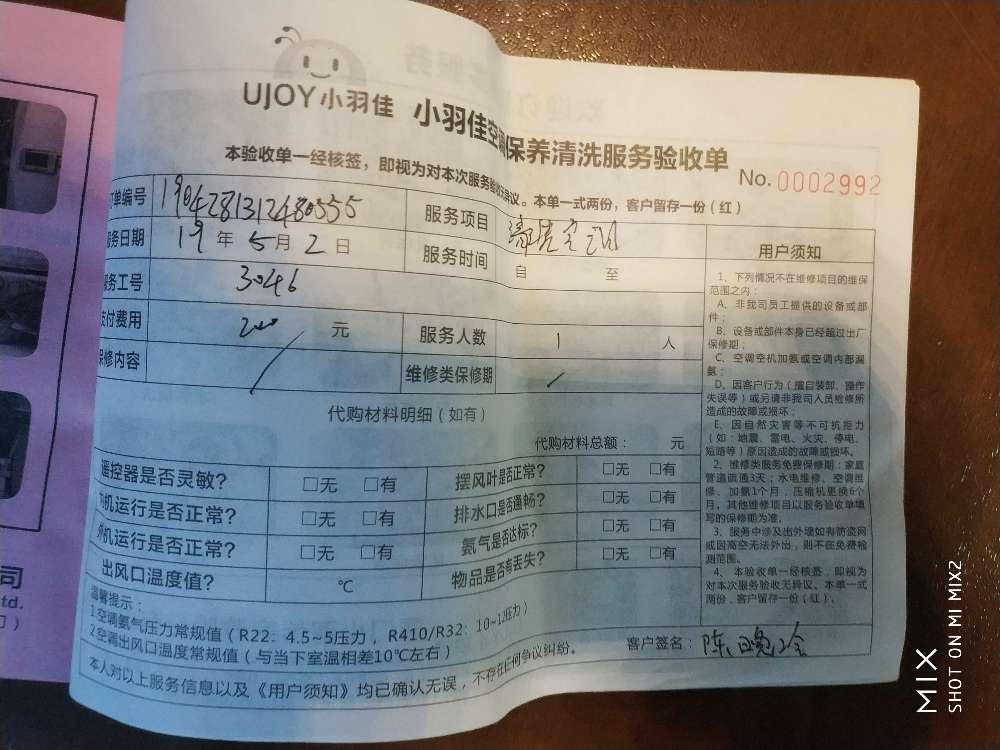 UJOY小羽佳 小羽佳空调保养清洗服务验收单
No.0002992
本验收单一经核签，即视为对本次服务验收无异议。本单一式两份，客户留存一份（红）
订单编号 1904281312480555 服务项目 清洗空调
服务日期 19 年 5 月 2 日 服务时间 自 至
服务工号 3046
支付费用 200 元 服务人数 1 人
保修内容 维修类保修期
代购材料明细（如有）
代购材料总额： 元
遥控器是否灵敏？ □无 □有 摆风叶是否正常？ □无 □有
内机运行是否正常？ □无 □有 排水口是否通畅？ □无 □有
外机运行是否正常？ □无 □有 氨气是否达标？ □无 □有
出风口温度值？ ℃ 物品是否有丢失？ □无 □有
温馨提示：
1.空调氨气压力常规值（R22：4.5~5压力，R410/R32：10~12压力）
2.空调出风口温度常规值（与当下室温相差10℃左右）
本人对以上服务信息以及《用户须知》均已确认无误，不存在任何争议纠纷。
用户须知
1、下列情况不在维修项目的维保
范围之内：
A、非我司员工提供的设备或部
件；
B、设备或部件本身已经超过出厂
保修期；
C、空调空机加氨或空调内部漏
氨；
D、因客户行为（擅自装卸、操作
失误等）或另请非我司人员检修所
造成的故障或损坏；
E、因自然灾害等不可抗拒力
（如：地震、雷电、火灾、停电、
短路等）原因造成的故障或损坏。
2、维修类服务免费保修期：家庭
管道疏通3天；水电维修、空调维
修、加氨1个月，压缩机更换6个
月，其他维修项目以服务验收单填
写的保修期为准。
3、服务中涉及出外墙如有防盗网
或因高空无法外出，则不在免费检
测范围。
4、本验收单一经核签，即视为
对本次服务验收无异议、本单一式
两份，客户留存一份（红）。
客户签名：
司
td.
MIX
SHOT ON MI MIX2